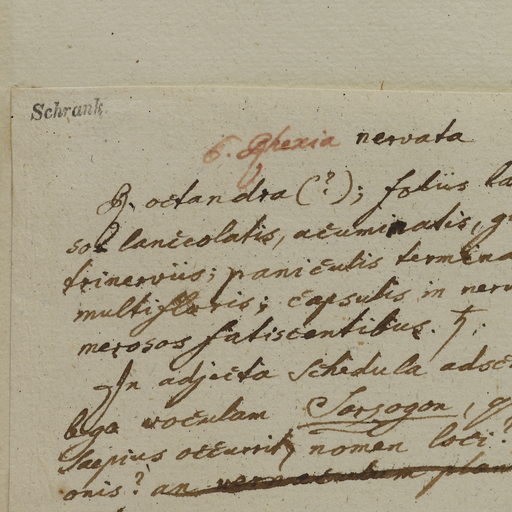 Schrank.
6. Rhexia nervata
R. octandra (?); foliis la
so lanceolatis, acuminatis, g
trinerviis; paniculis termina
multifloris; capsulis in nerv
merosos fatiscentibus. ♄.
In adjecta schedula adsc
voculam Sorsogon, q
saepius occurrit, nomen loci?
onis? an vernaculum plan